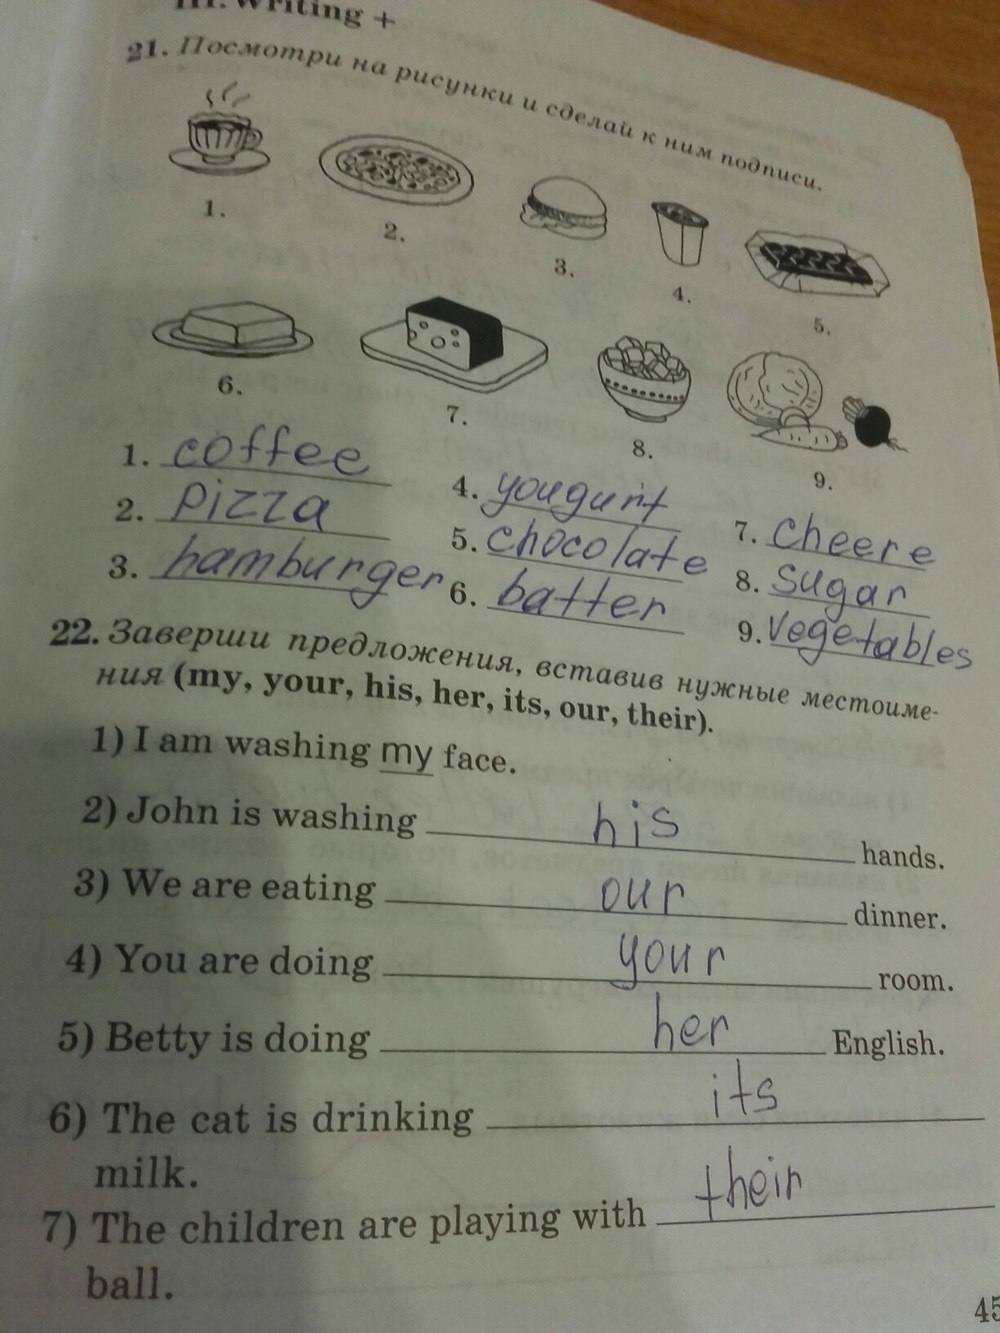 III. Writing +
21. Посмотри на рисунки и сделай к ним подписи.
1.
2.
3.
4.
5.
6.
7.
8.
9.
1. coffee
2. pizza
3. hamburger
4. yougurt
5. chocolate
6. batter
7. cheere
8. sugar
9. vegetables
22. Заверши предложения, вставив нужные местоиме-
ния (my, your, his, her, its, our, their).
1) I am washing my face.
2) John is washing his hands.
3) We are eating our dinner.
4) You are doing your room.
5) Betty is doing her English.
6) The cat is drinking its
milk.
7) The children are playing with their
ball.
45